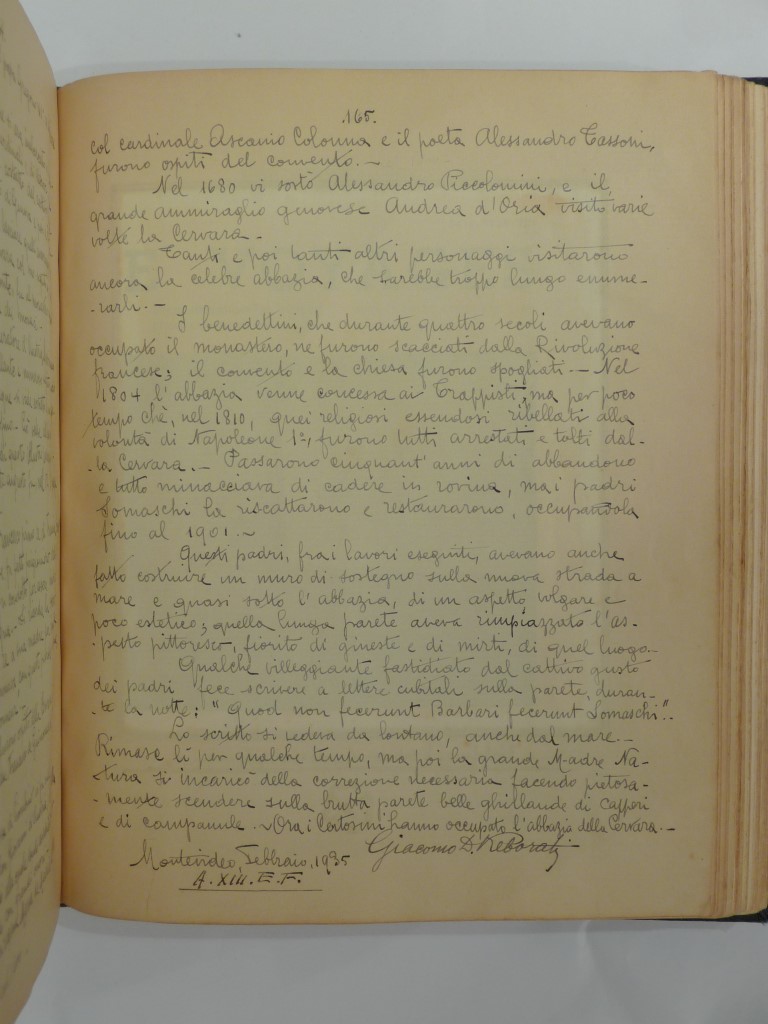 .165.
col cardinale Ascanio Colonna e il poeta Alessandro Tassoni,
furono ospiti del convento.—
Nel 1680 vi sostò Alessandro Piccolomini, e il
grande ammiraglio genovese Andrea d'Oria visitò varie
volte la Cervara.
Tanti e poi tanti altri personaggi visitarono
ancora la celebre abbazia, che sarebbe troppo lungo enume-
-rarli.—
I benedettini, che durante quattro secoli avevano
occupato il monastero, ne furono scacciati dalla Rivoluzione
francese; il convento e la chiesa furono spogliati.— Nel
1804 l'abbazia venne concessa ai Trappisti, ma per poco
tempo chè, nel 1810, quei religiosi essendosi ribellati alla
volontà di Napoleone 1º, furono tutti arrestati e tolti dal-
-la Cervara.— Passarono cinquant'anni di abbandono
e tutto minacciava di cadere in rovina, ma i padri
Somaschi la riscattarono e restaurarono, occupandola
fino al 1901.~
Questi padri, fra i lavori eseguiti, avevano anche
fatto costruire un muro di sostegno sulla nuova strada a
mare e quasi sotto l'abbazia, di un aspetto volgare e
poco estetico; quella lunga parete aveva rimpiazzato l'as-
-petto pittoresco, fiorito di gineste e di mirti, di quel luogo.—
Qualche villeggiante fastidiato dal cattivo gusto
dei padri fece scrivere a lettere cubitali sulla parete, duran-
-te la notte: "Quod non fecerunt Barbari fecerunt Somaschi".
Lo scritto si vedeva da lontano, anche dal mare.—
Rimase lì per qualche tempo, ma poi la grande Madre Na-
-tura si incaricò della correzione necessaria facendo pietosa-
-mente scendere sulla brutta parete belle ghirlande di capperi
e di campanule. ~ Ora i Certosini hanno occupato l'abbazia della Cervara.—
Giacomo D. Reborati
Montevideo, Febbraio, 1935
A. XIII. E. F.